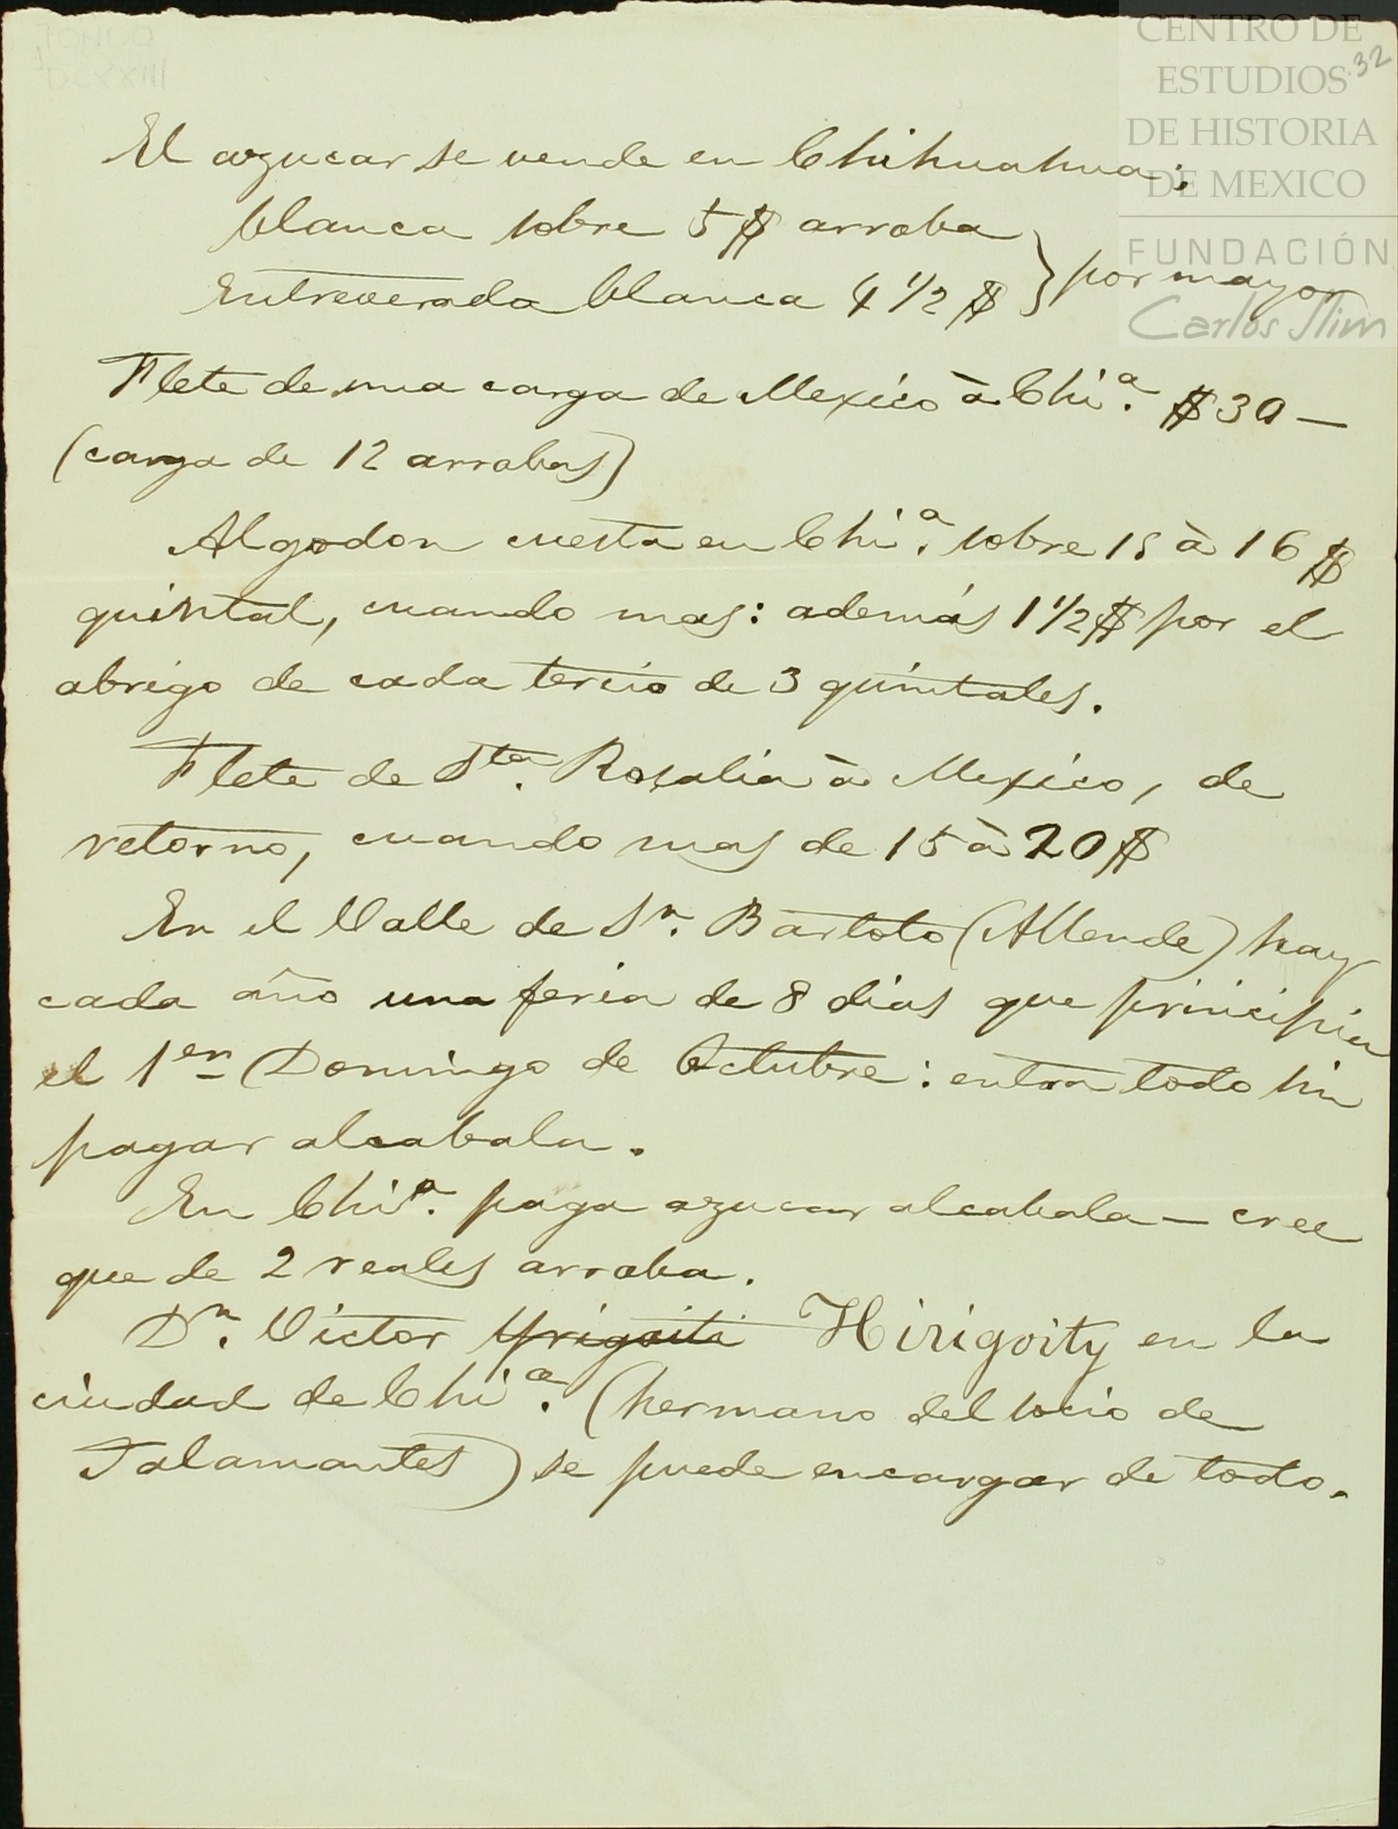 CENTRO DE
ESTUDIOS
DE HISTORIA
DE MEXICO
FUNDACIÓN
Carlos Slim
32
El azucar se vende en Chihuahua:
blanca sobre 5 $ arroba
Entreverada blanca 4 1/2 $ } por mayor
Flete de una carga de Mexico à Chiª. $ 30 —
(carga de 12 arrobas)
Algodon cuesta en Chiª. sobre 15 à 16 $
quintal, cuando mas: además 1 1/2 $ por el
abrigo de cada tercio de 3 quintales.
Flete de Sta. Rosalia à Mexico, de
retorno, cuando mas de 15 à 20 $
En el Valle de Sn. Bartolo (Allende) hay
cada año una feria de 8 dias que principia
el 1er Domingo de Octubre: entra todo sin
pagar alcabala.
En Chiª. paga azucar alcabala — cree
que de 2 reales arroba.
Dn. Victor Yrigoiti Hirigoity en la
ciudad de Chiª. (hermano del socio de
Talamantes) se puede encargar de todo.